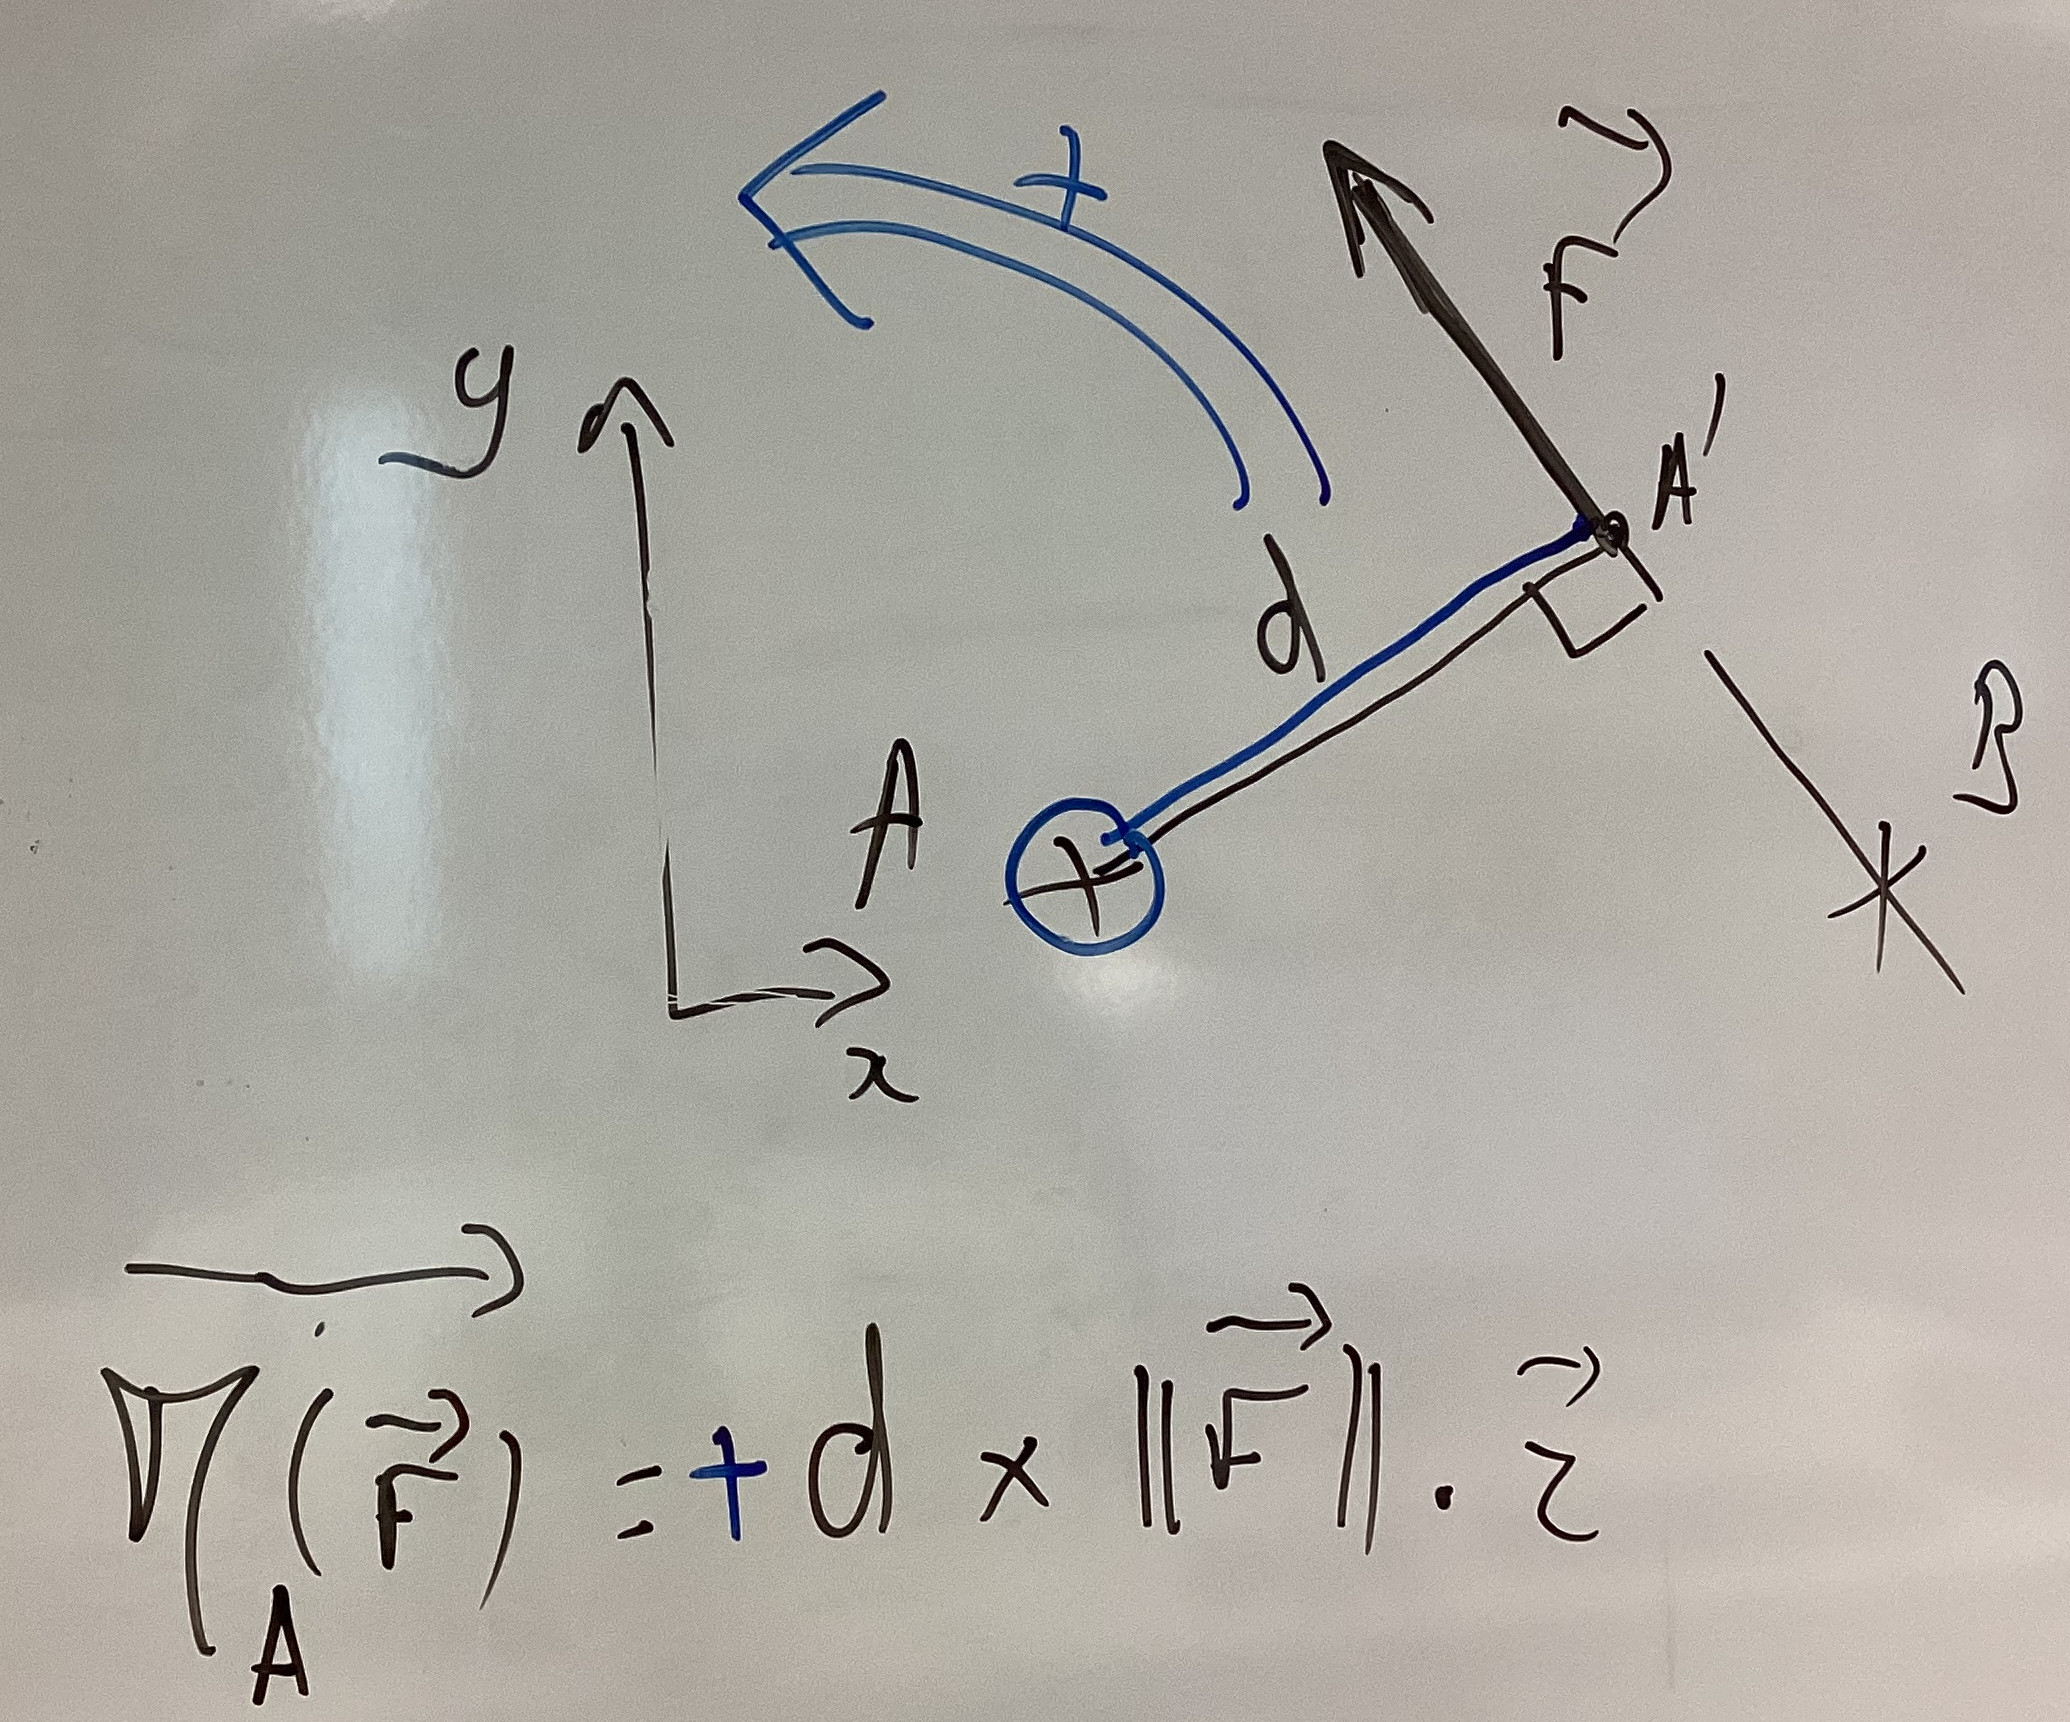 +
F⃗
y
A'
d
B
A
x
M⃗_A(F⃗) = + d × ||F⃗|| . z⃗